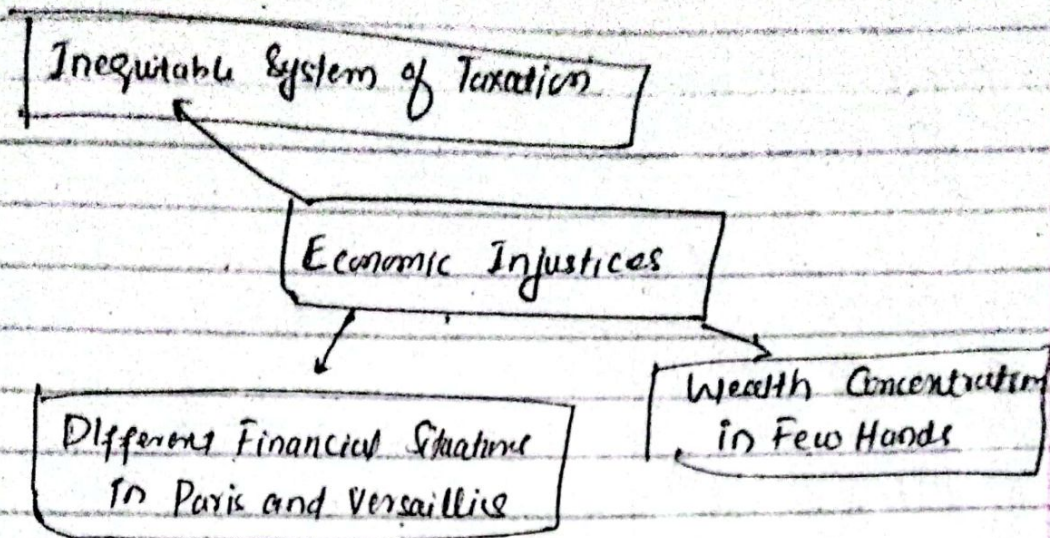 Inequitable System of Taxation
Economic Injustices
Different Financial Situations
in Paris and Versaillies
Wealth Concentration
in Few Hands